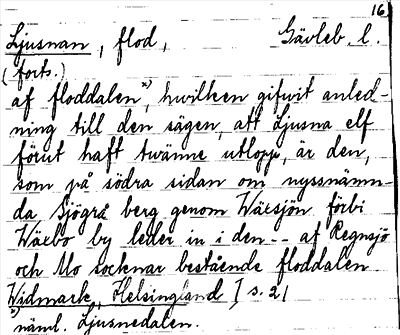 16.
Ljusnan, flod, Gävleb. l.
(forts.)
af floddalen*), hwilken gifwit anled-
ning till den sägen, att Ljusna elf
förut haft twänne utlopp, är den,
som på södra sidan om nyssnämn-
da Sjögrå berg genom Wäxsjön förbi
Wäxbo by leder in i den -- af Regnsjö
och Mo socknar bestående floddalen
Widmark, Helsingland I s. 21
*) näml. Ljusnedalen.